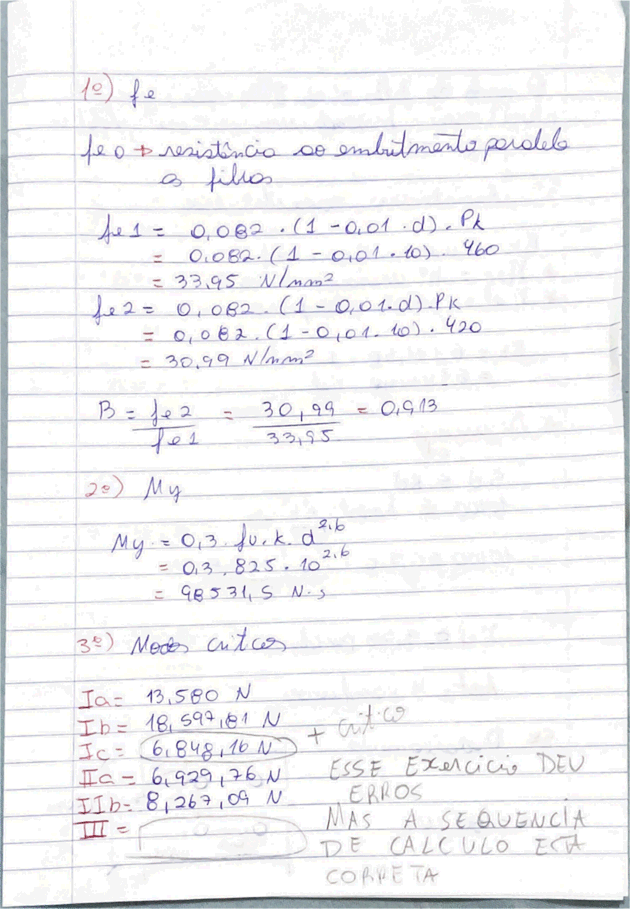 1º) fe
fe0 → resistência ao embutimento paralela
as fibras
fe1 = 0,082 . (1 - 0,01 . d) . Pk
= 0,082 . (1 - 0,01 . 10) . 460
= 33,95 N/mm²
fe2 = 0,082 . (1 - 0,01 . d) . Pk
= 0,082 . (1 - 0,01 . 10) . 420
= 30,99 N/mm²
B = fe2 / fe1 = 30,99 / 33,95 = 0,913
2º) My
My = 0,3 . fu.k . d^2,6
= 0,3 . 825 . 10^2,6
= 98531,5 N.
3º) Modos criticos
Ia = 13,580 N
Ib = 18,597,81 N
Ic = 6,848,16 N + critico
IIa = 6,929,76 N
IIb = 8,267,09 N
III =
ESSE Exercicio DEU
ERROS
MAS A SEQUENCIA
DE CALCULO ESTA
CORRETA